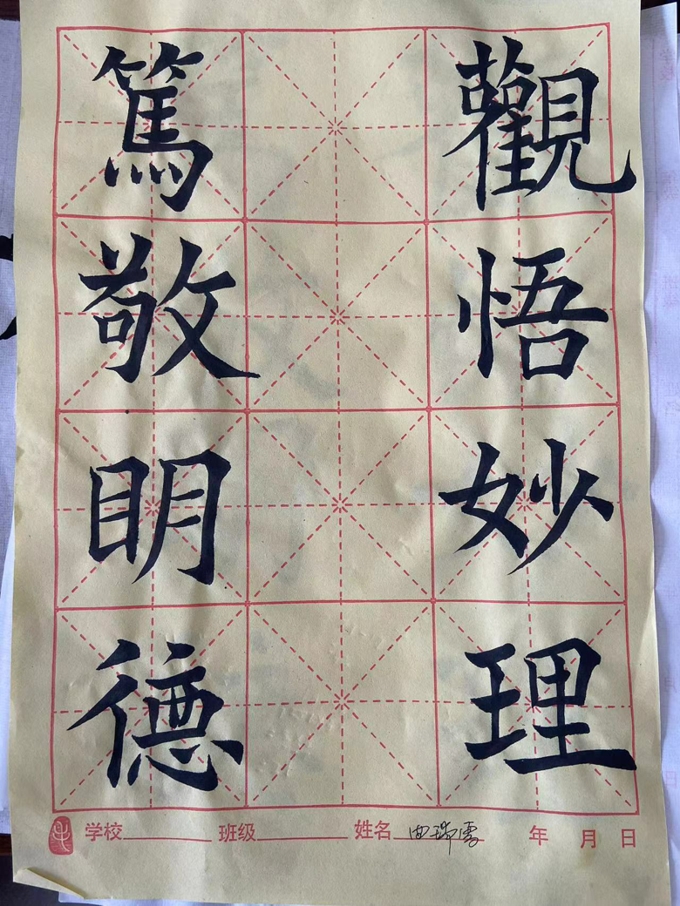 觀悟妙理
篤敬明德
学校 班级 姓名 曲瑞雪 年 月 日